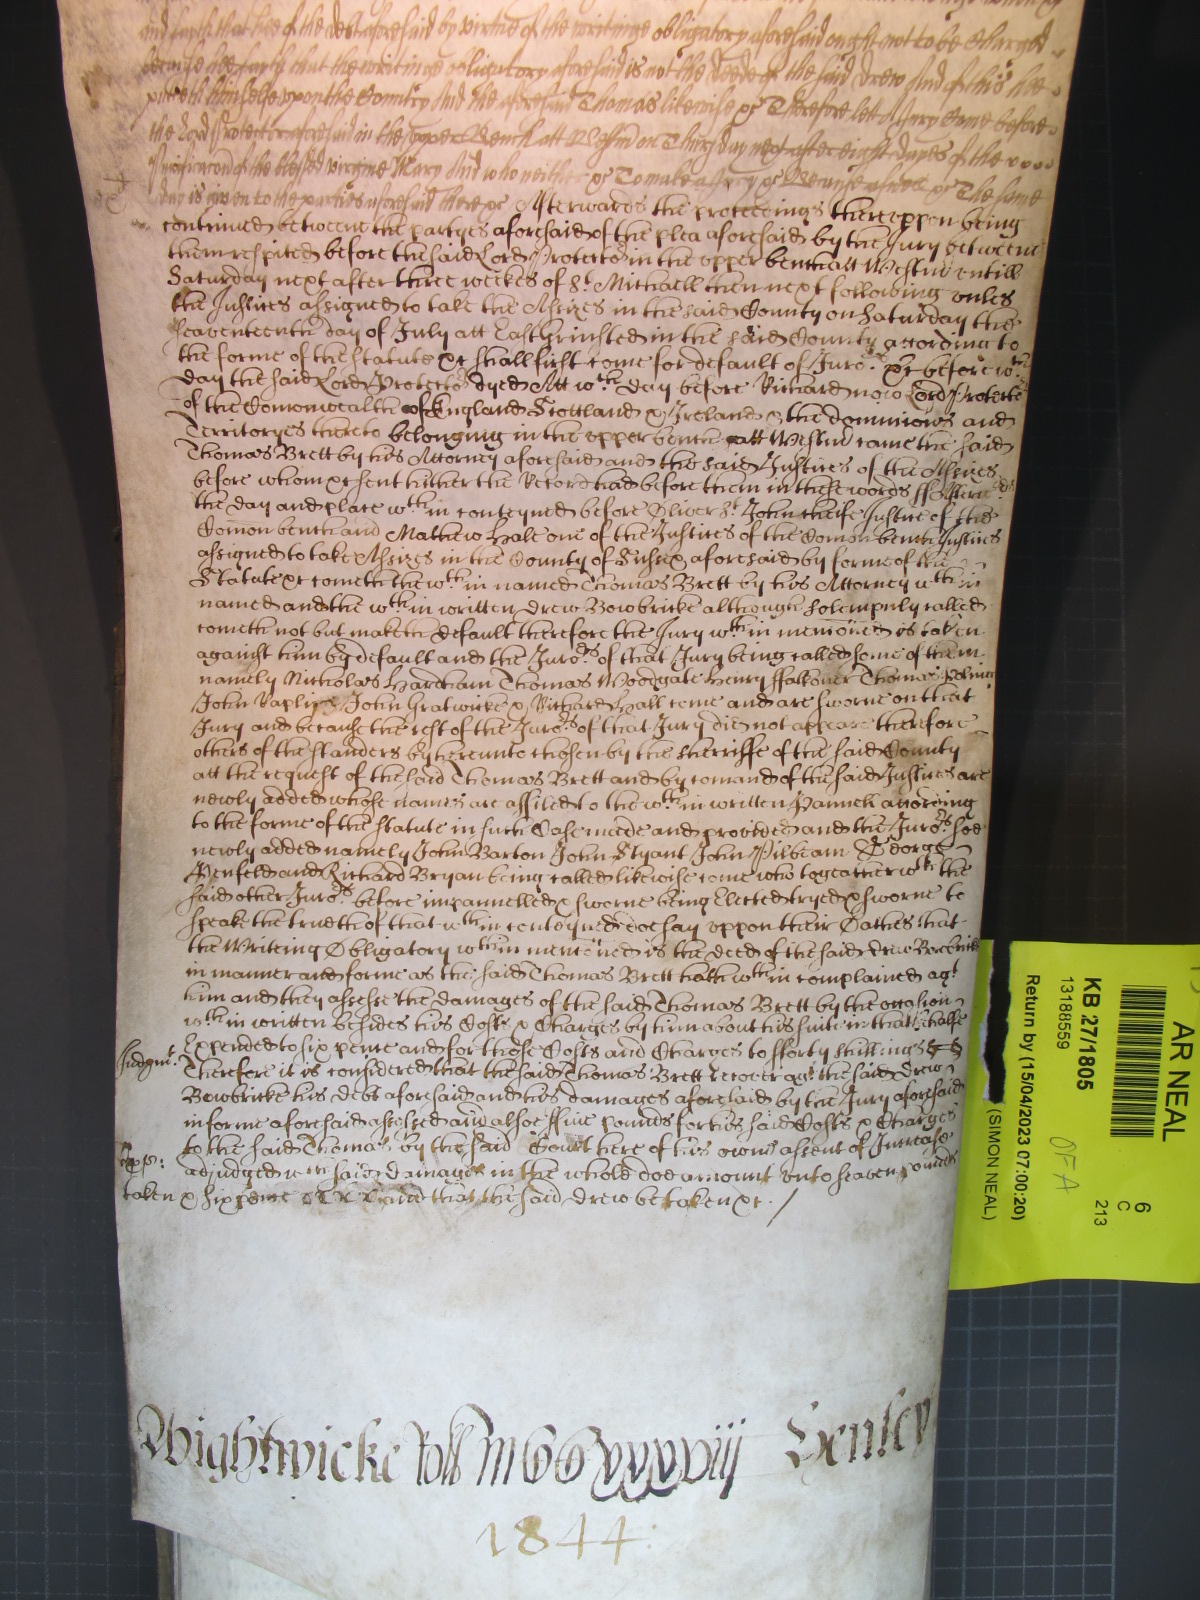 and saith that hee of the debt aforesaid by virtue of the writeinge obligatory aforesaid ought not to be Charged
because hee saith that the writeinge obligatory aforesaid is not the deede of the said Drew And of this hee
putteth himselfe vppon the Country And the aforesaid Thomas likewise &c Therefore lett A Jury Come before
the Lord Protector aforesaid in the vpper Bench att Westm on Thursday next after eight dayes of the
Purificacon of the blessed virgine Mary And who neither &c To make a Jury &c Because aswell &c The same
day is given to the parties aforesaid there &c Afterwards the proceedings therevppon being
continued betweene the partyes aforesaid of the plea aforesaid by the Jury betweene
them respited before the said Lord Protector in the vpper bench att Westm vntill
Saturday next after three weekes of St Michaell then next following vnles
the Justices assigned to take the Assizes in the said County on Saturday the
seaventeenth day of July att East Grinsted in the said County according to
the forme of the Statute &c shall first come for default of Juro.rs &c before wch
day the said Lord Protector dyed Att wch day before Richard now Lord Protector
of the Comonwealth of England Scottland & Ireland & the dominions and
Territoryes thereto belonging in the vpper bench att Westm came the said
Thomas Brett by his Attorney aforesaid and the said Justices of the Assizes
before whom &c sent hither the Record had before them in these words ff Afterwards
the day and place wthin conteyned before Oliver St John cheife Justice of the
Comon bench and Mathew Hale one of the Justices of the Comon bench Justices
assigned to take Assizes in the County of Sussex aforesaid by forme of the
Statute &c cometh the wthin named Thomas Brett by his Attorney wthin
named and the wthin written Drew Bowbricke although solempnly called
cometh not but maketh default therefore the Jury wthin menconed is taken
against him by default and the Juro.rs of that Jury being called some of them
namely Nicholas Hardham Thomas Woodgate Henry ffalkoner Thomas
John John Gratwicke & Richard Hall come and are sworne on that
Jury and because the rest of the Juro.rs of that Jury did not appeare therefore
others of the standers by herevnto chosen by the sherriffe of the said County
att the request of the said Thomas Brett and by comand of the said Justices are
newly added whose names are affiled to the wthin written Pannell according
to the forme of the statute in such Case made and provided and the Juro.rs soe
newly added namely John Barton John Styant John Pilbeam George
Penfold and Richard Bryan being called likewise come who togeather wth the
said other Juro.rs before impannelled & sworne being Elected tryed & sworne to
speake the trueth of that wthin conteyned doe say vppon their Oathes that
the Writeing Obligatory wthin menconed is the deed of the said Drew Bowbricke
in manner and forme as the said Thomas Brett hath wthin complained agt
him and they assesse the damages of the said Thomas Brett by the occasion
wthin written besides his Costs & Charges by him about his suite in that behalfe
Judgmt: Expended to six pence and for those Costs and Charges to fforty shillings
Therefore it is considered that the said Thomas Brett recover agt the said Drew
Bowbricke his debt aforesaid and his damages aforesaid by the Jury aforesaid
in forme aforesaid assessed and alsoe ffive pounds for his said Costs & Charges
to the said Thomas by the said Court here of his owne assent of Increase
adjudged wch said damages in the whole doe amount vnto seaven pounds
taken & six pence And that the said Drew be taken &c. /
Wightwicke Roll MCCxxxxviij Henley
1844:
AR NEAL
KB 27/1805
13188559
Return by (15/04/2023 07:00:20)
(SIMON NEAL)
6
C
213
OFA